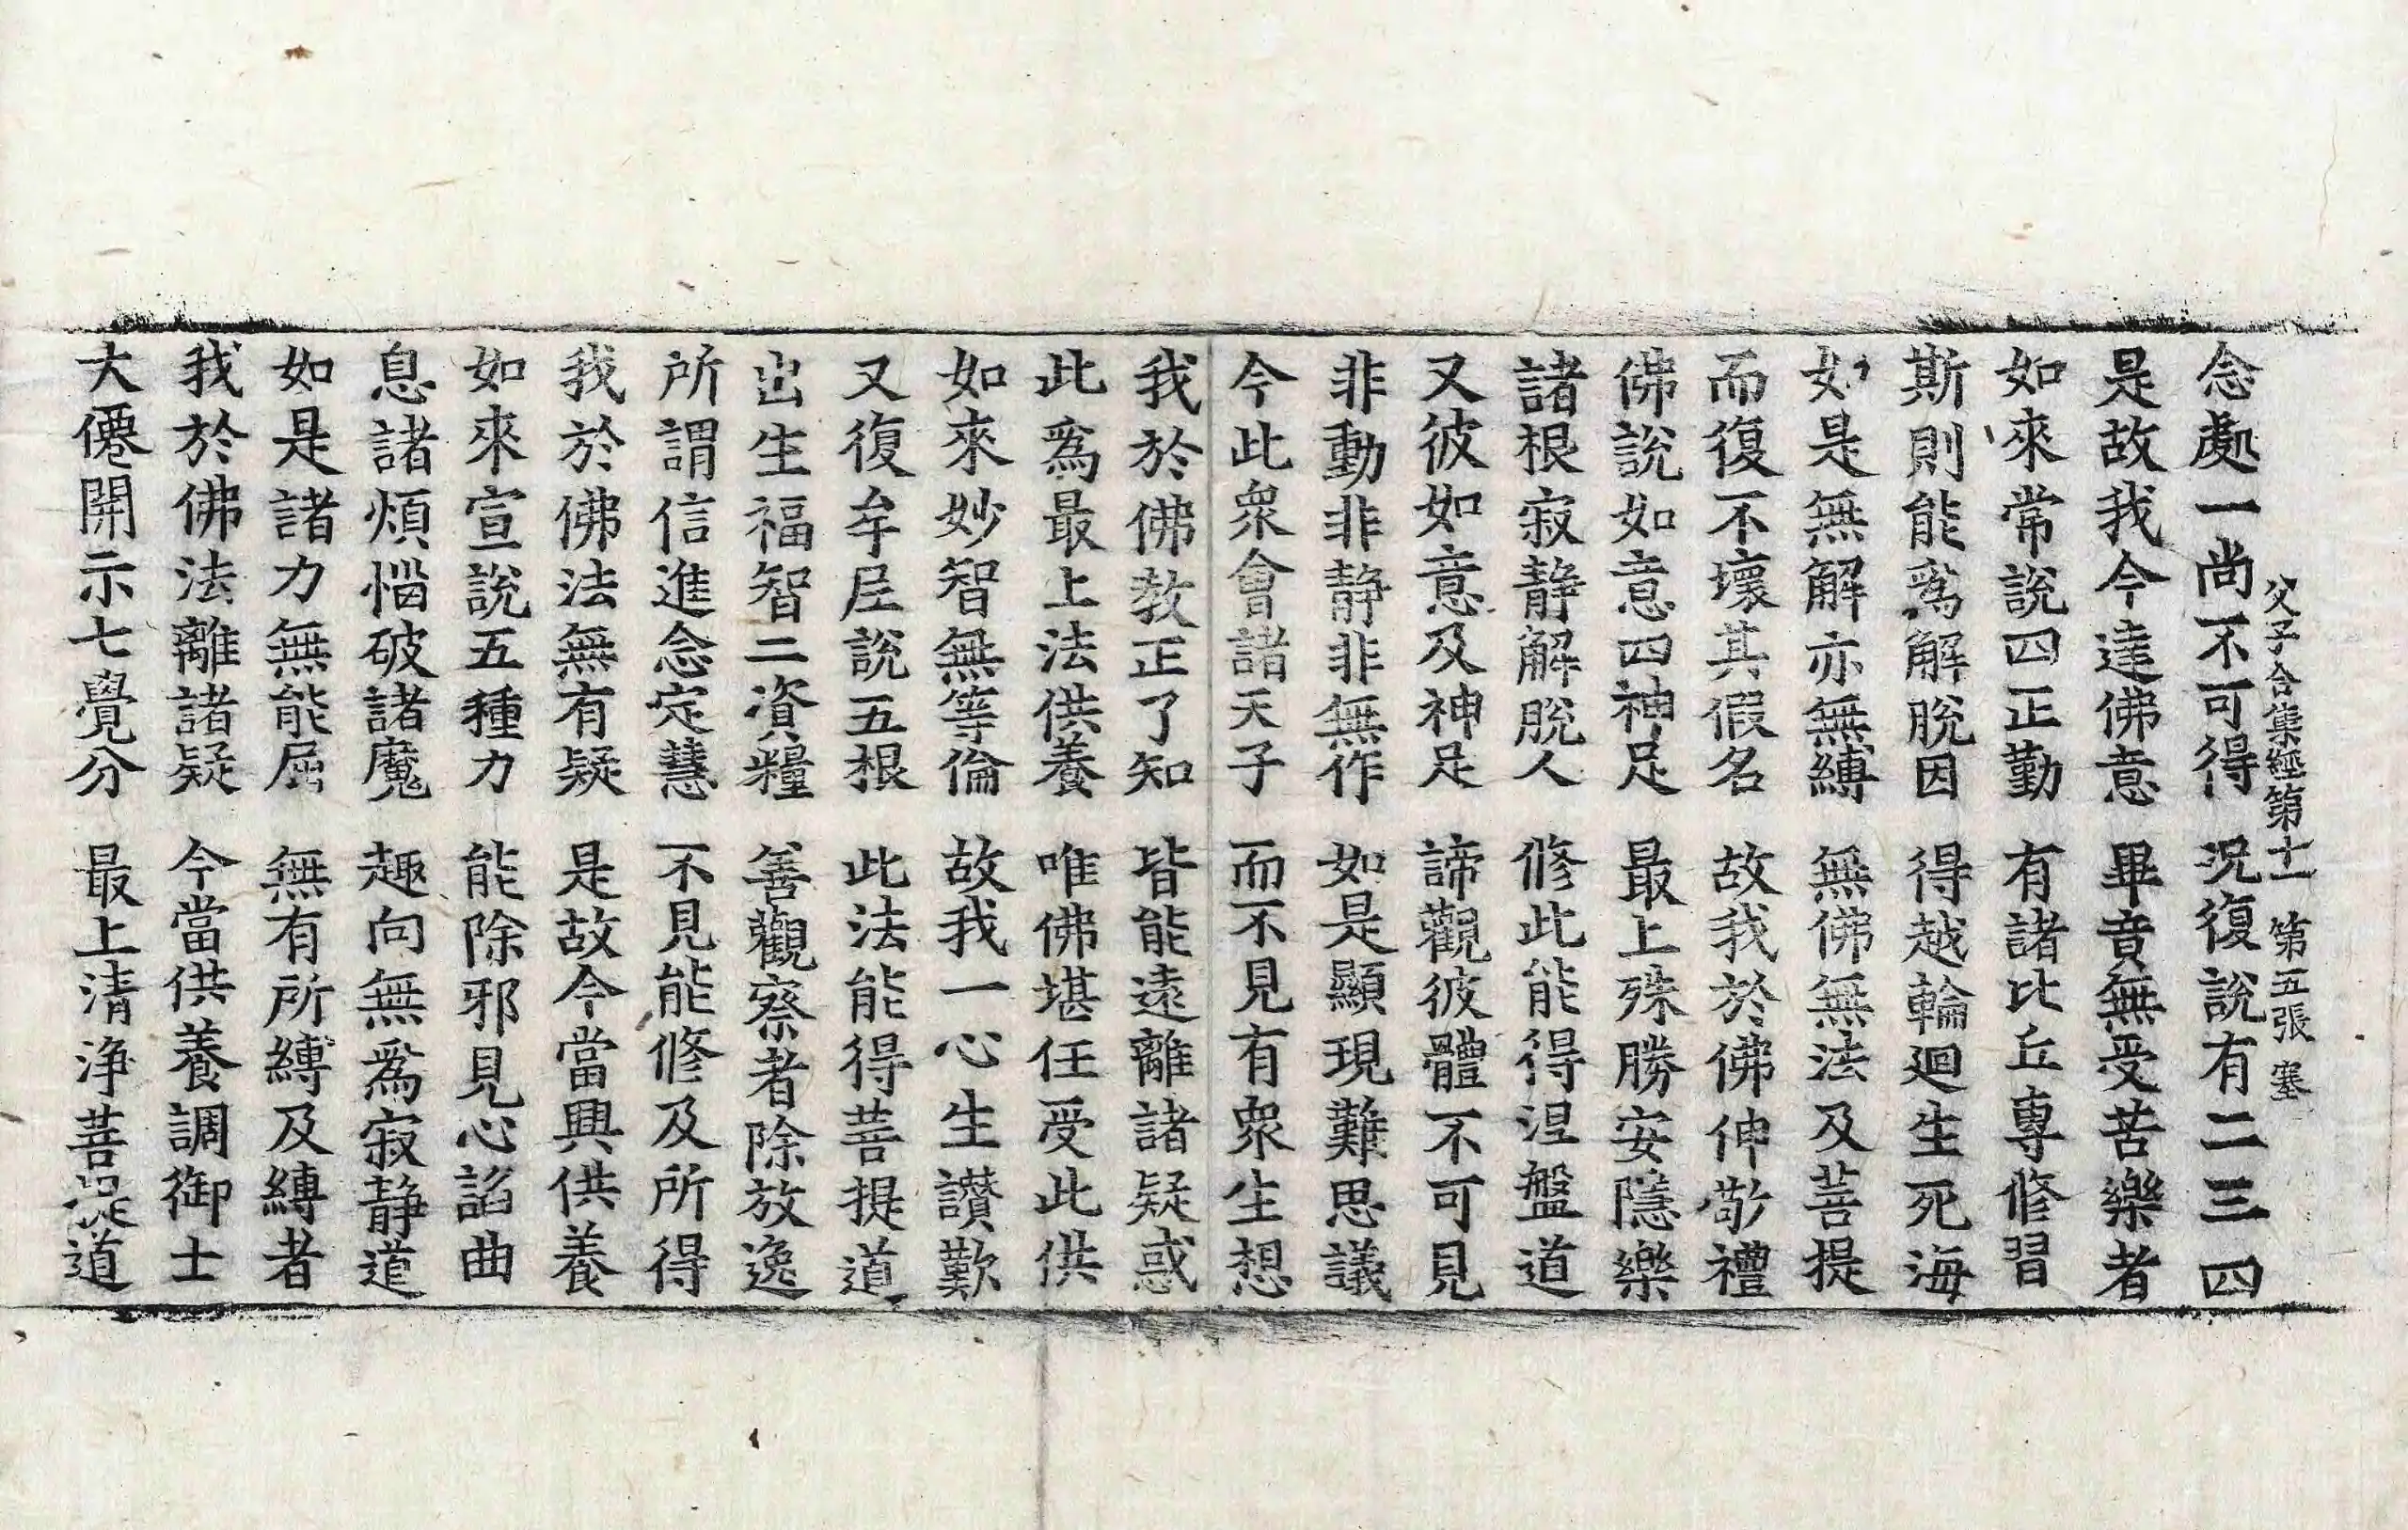 父子合集經第十一 第五張 塞
念處一尚不可得 況復說有二三四
是故我今達佛意 畢竟無受苦樂者
如來常說四正勤 有諸比丘專修習
斯則能爲解脫因 得越輪迴生死海
如是無解亦無縛 無佛無法及菩提
而復不壞其假名 故我於佛伸敬禮
佛說如意四神足 最上殊勝安隱樂
諸根寂静解脫人 修此能得涅盤道
又彼如意及神足 諦觀彼體不可見
非動非静非無作 如是顯現難思議
今此衆會諸天子 而不見有衆生想
我於佛教正了知 皆能遠離諸疑惑
此爲最上法供養 唯佛堪任受此供
如來妙智無等倫 故我一心生讃歎
又復牟尼說五根 此法能得菩提道
出生福智二資糧 善觀察者除放逸
所謂信進念定慧 不見能修及所得
我於佛法無有疑 是故今當興供養
如來宣說五種力 能除邪見心諂曲
息諸煩惱破諸魔 趣向無爲寂静道
如是諸力無能屈 無有所縛及縛者
我於佛法離諸疑 今當供養調御士
大僊開示七覺分 最上清淨菩提道